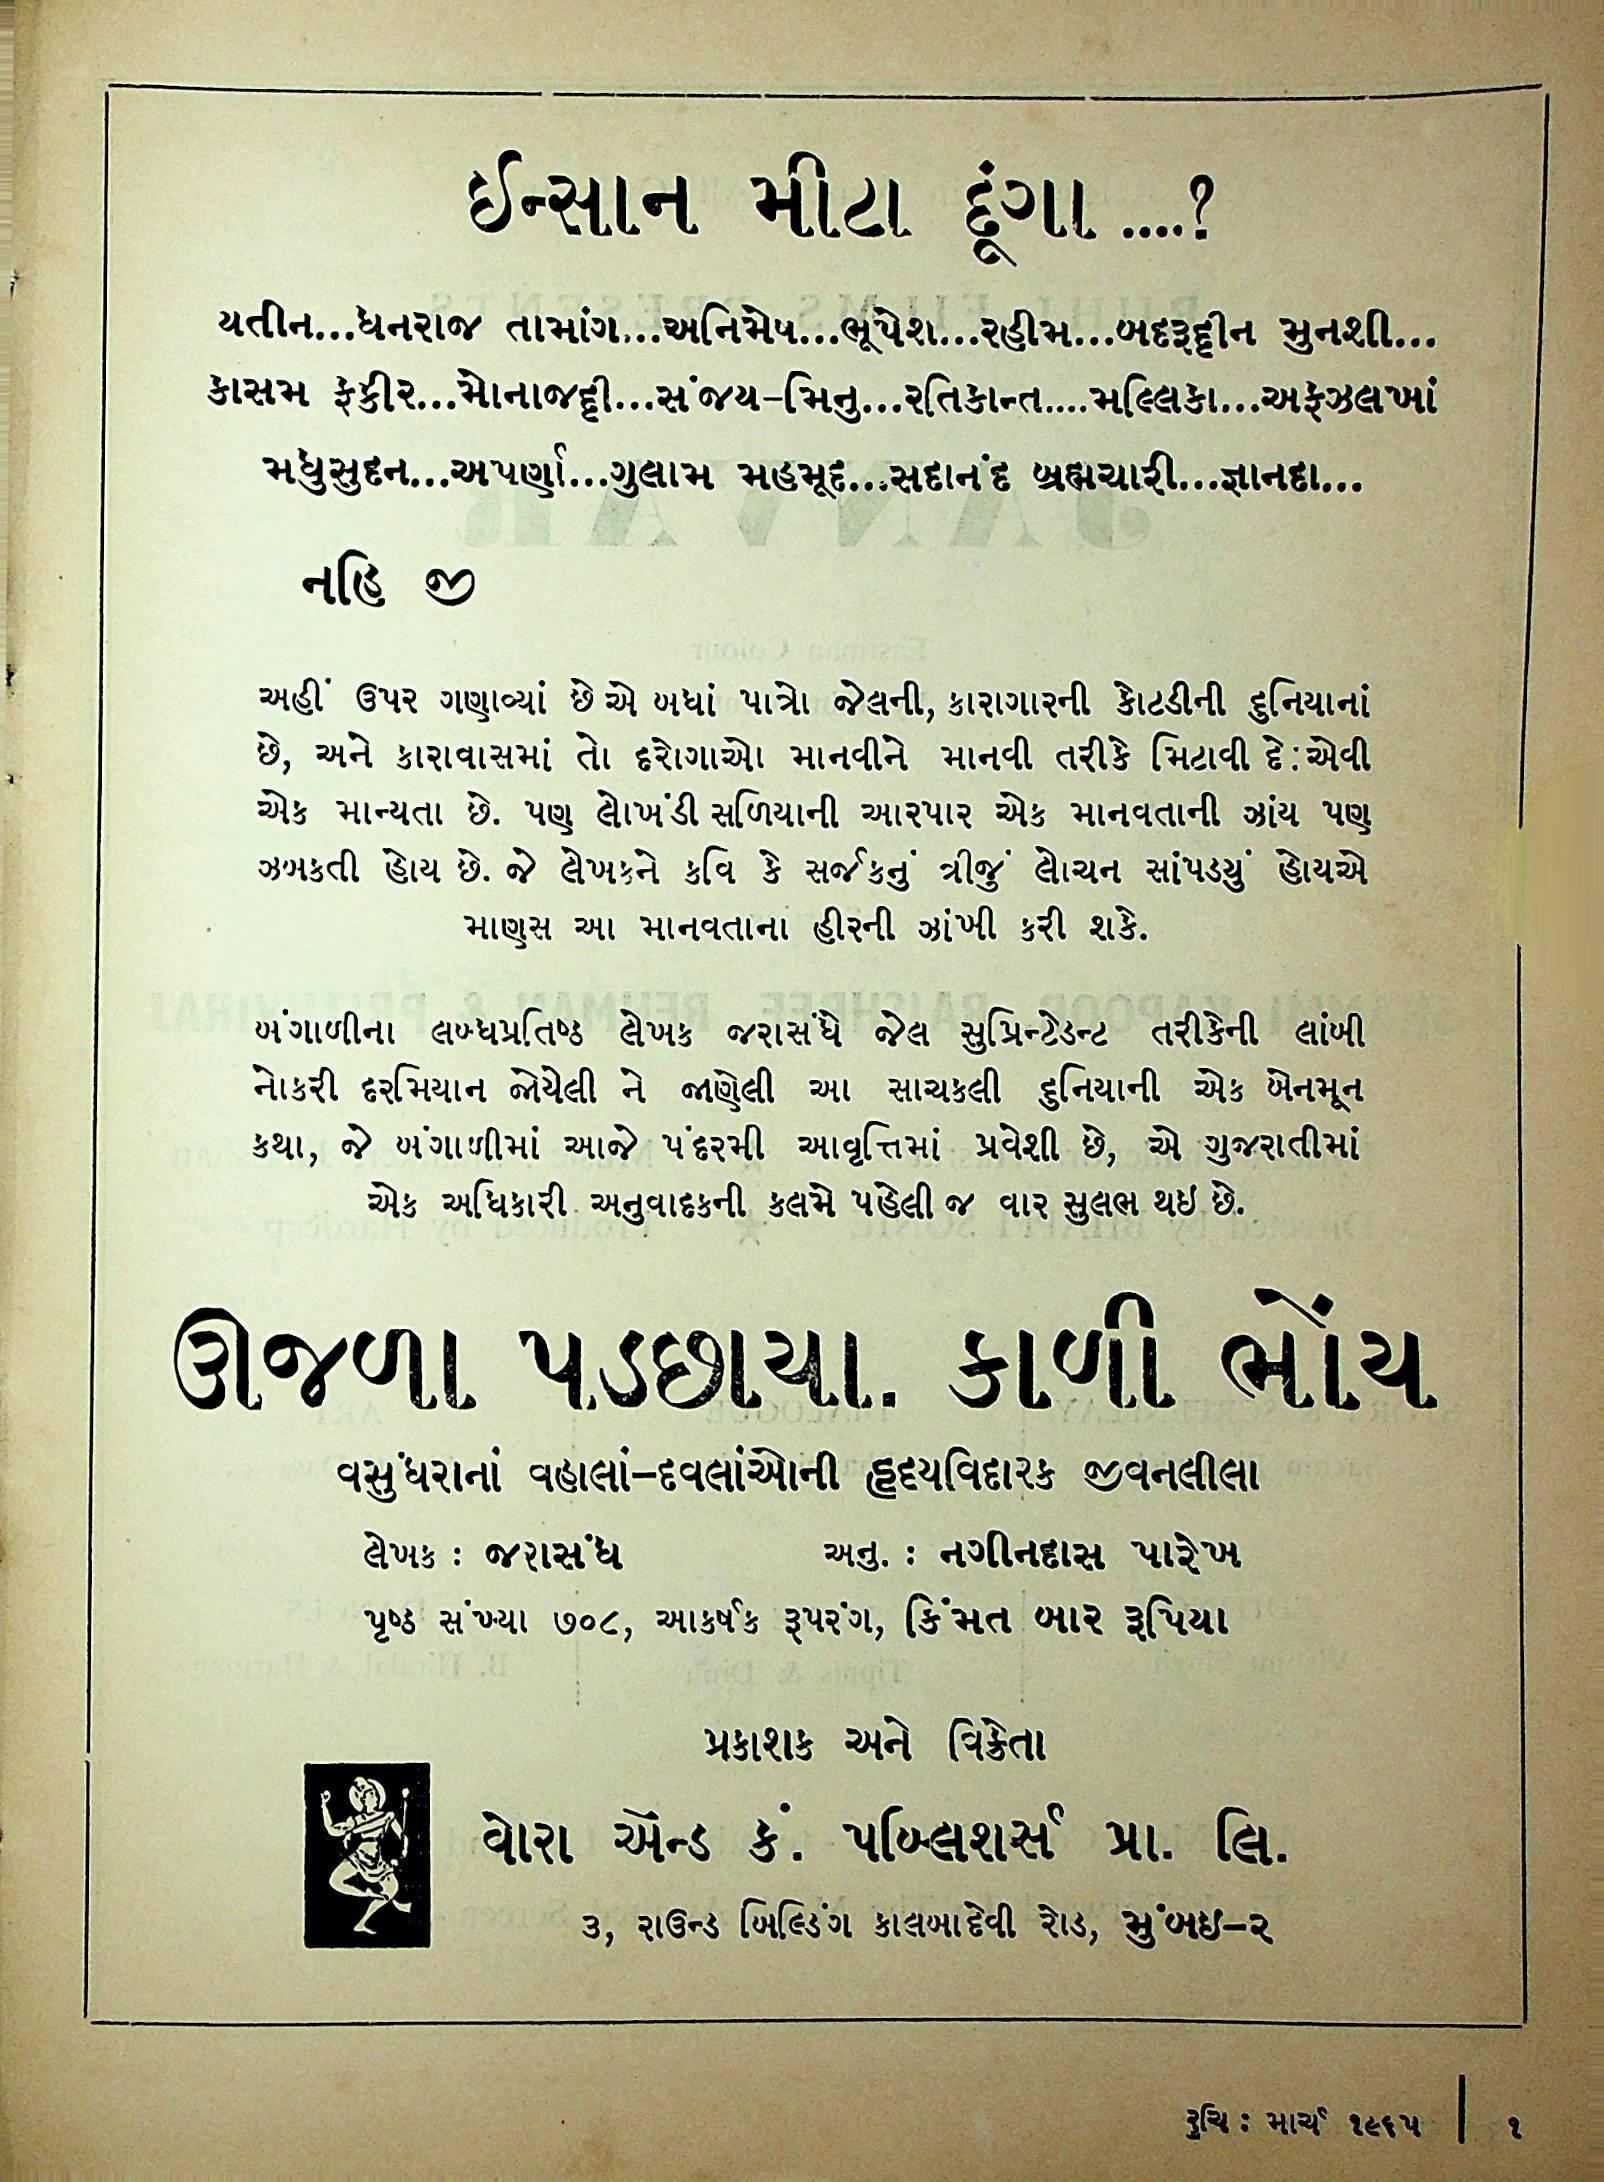 ઈન્સાન મીટા દૂંગા ....?
યતીન...ધનરાજ તામાંગ...અનિમેષ...ભૂપેશ...રહીમ...બદરૂદ્દીન મુનશી...
કાસમ ફકીર...મોનાજદ્દી...સંજય-મિનુ...રતિકાન્ત....મલ્લિકા...અફઝલખાં
મધુસુદન...અપર્ણા...ગુલામ મહમૂદ...સદાનંદ બ્રહ્મચારી...જ્ઞાનદા...
નહિ જી
અહીં ઉપર ગણાવ્યાં છે એ બધાં પાત્રો જેલની, કારાગારની કોટડીની દુનિયાનાં
છે, અને કારાવાસમાં તો દરોગાઓ માનવીને માનવી તરીકે મિટાવી દે : એવી
એક માન્યતા છે. પણ લોખંડી સળિયાની આરપાર એક માનવતાની ઝાંય પણ
ઝબકતી હોય છે. જે લેખકને કવિ કે સર્જકનું ત્રીજું લોચન સાંપડયું હોયએ
માણસ આ માનવતાના હીરની ઝાંખી કરી શકે.
બંગાળીના લબ્ધપ્રતિષ્ઠ લેખક જરાસંધે જેલ સુપ્રિન્ટેડન્ટ તરીકેની લાંબી
નોકરી દરમિયાન જોયેલી ને જાણેલી આ સાચકલી દુનિયાની એક બેનમૂન
કથા, જે બંગાળીમાં આજે પંદરમી આવૃત્તિમાં પ્રવેશી છે, એ ગુજરાતીમાં
એક અધિકારી અનુવાદકની કલમે પહેલી જ વાર સુલભ થઇ છે.
ઊજળા પડછાયા. કાળી ભોંય
વસુંધરાનાં વહાલાં-દવલાંઓની હૃદયવિદારક જીવનલીલા
લેખક : જરાસંધ અનુ. : નગીનદાસ પારેખ
પૃષ્ઠ સંખ્યા ૭૦૮, આકર્ષક રૂપરંગ, કિંમત બાર રૂપિયા
પ્રકાશક અને વિક્રેતા
વોરા ઍન્ડ કં. પબ્લિશર્સ પ્રા. લિ.
૩, રાઉન્ડ બિલ્ડિંગ કાલબાદેવી રોડ, મુંબઇ-૨
રુચિ : માર્ચ ૧૯૬૫ | ૧